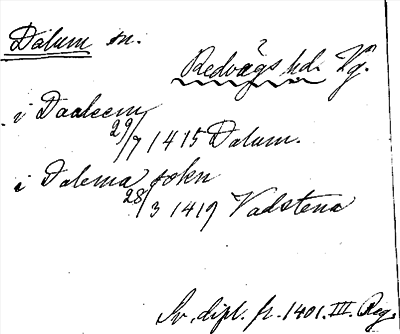 Dalum sn.
Redvägs hd. Vg.
i Daaleem
29/7 1415 Dalum.
i Dalema sokn
28/3 1419 Vadstena
Sv. dipl. fr. 1401. III. Reg.